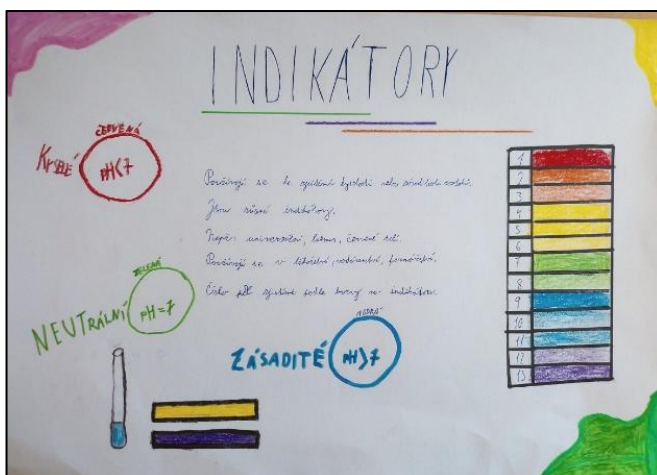 INDIKÁTORY
ČERVENÁ
KYSELÉ pH<7
Používají se ke zjištění kyselosti nebo zásaditosti roztoků.
Jsou různé indikátory.
Např. univerzální, lakmus, červené zelí.
Používají se v lékařství, vodárenství, farmářství.
Číslo pH zjistíme podle barvy na indikátoru.
ZELENÁ
NEUTRÁLNÍ pH=7
MODRÁ
ZÁSADITÉ pH>7
1
2
3
4
5
6
7
8
9
10
11
12
13